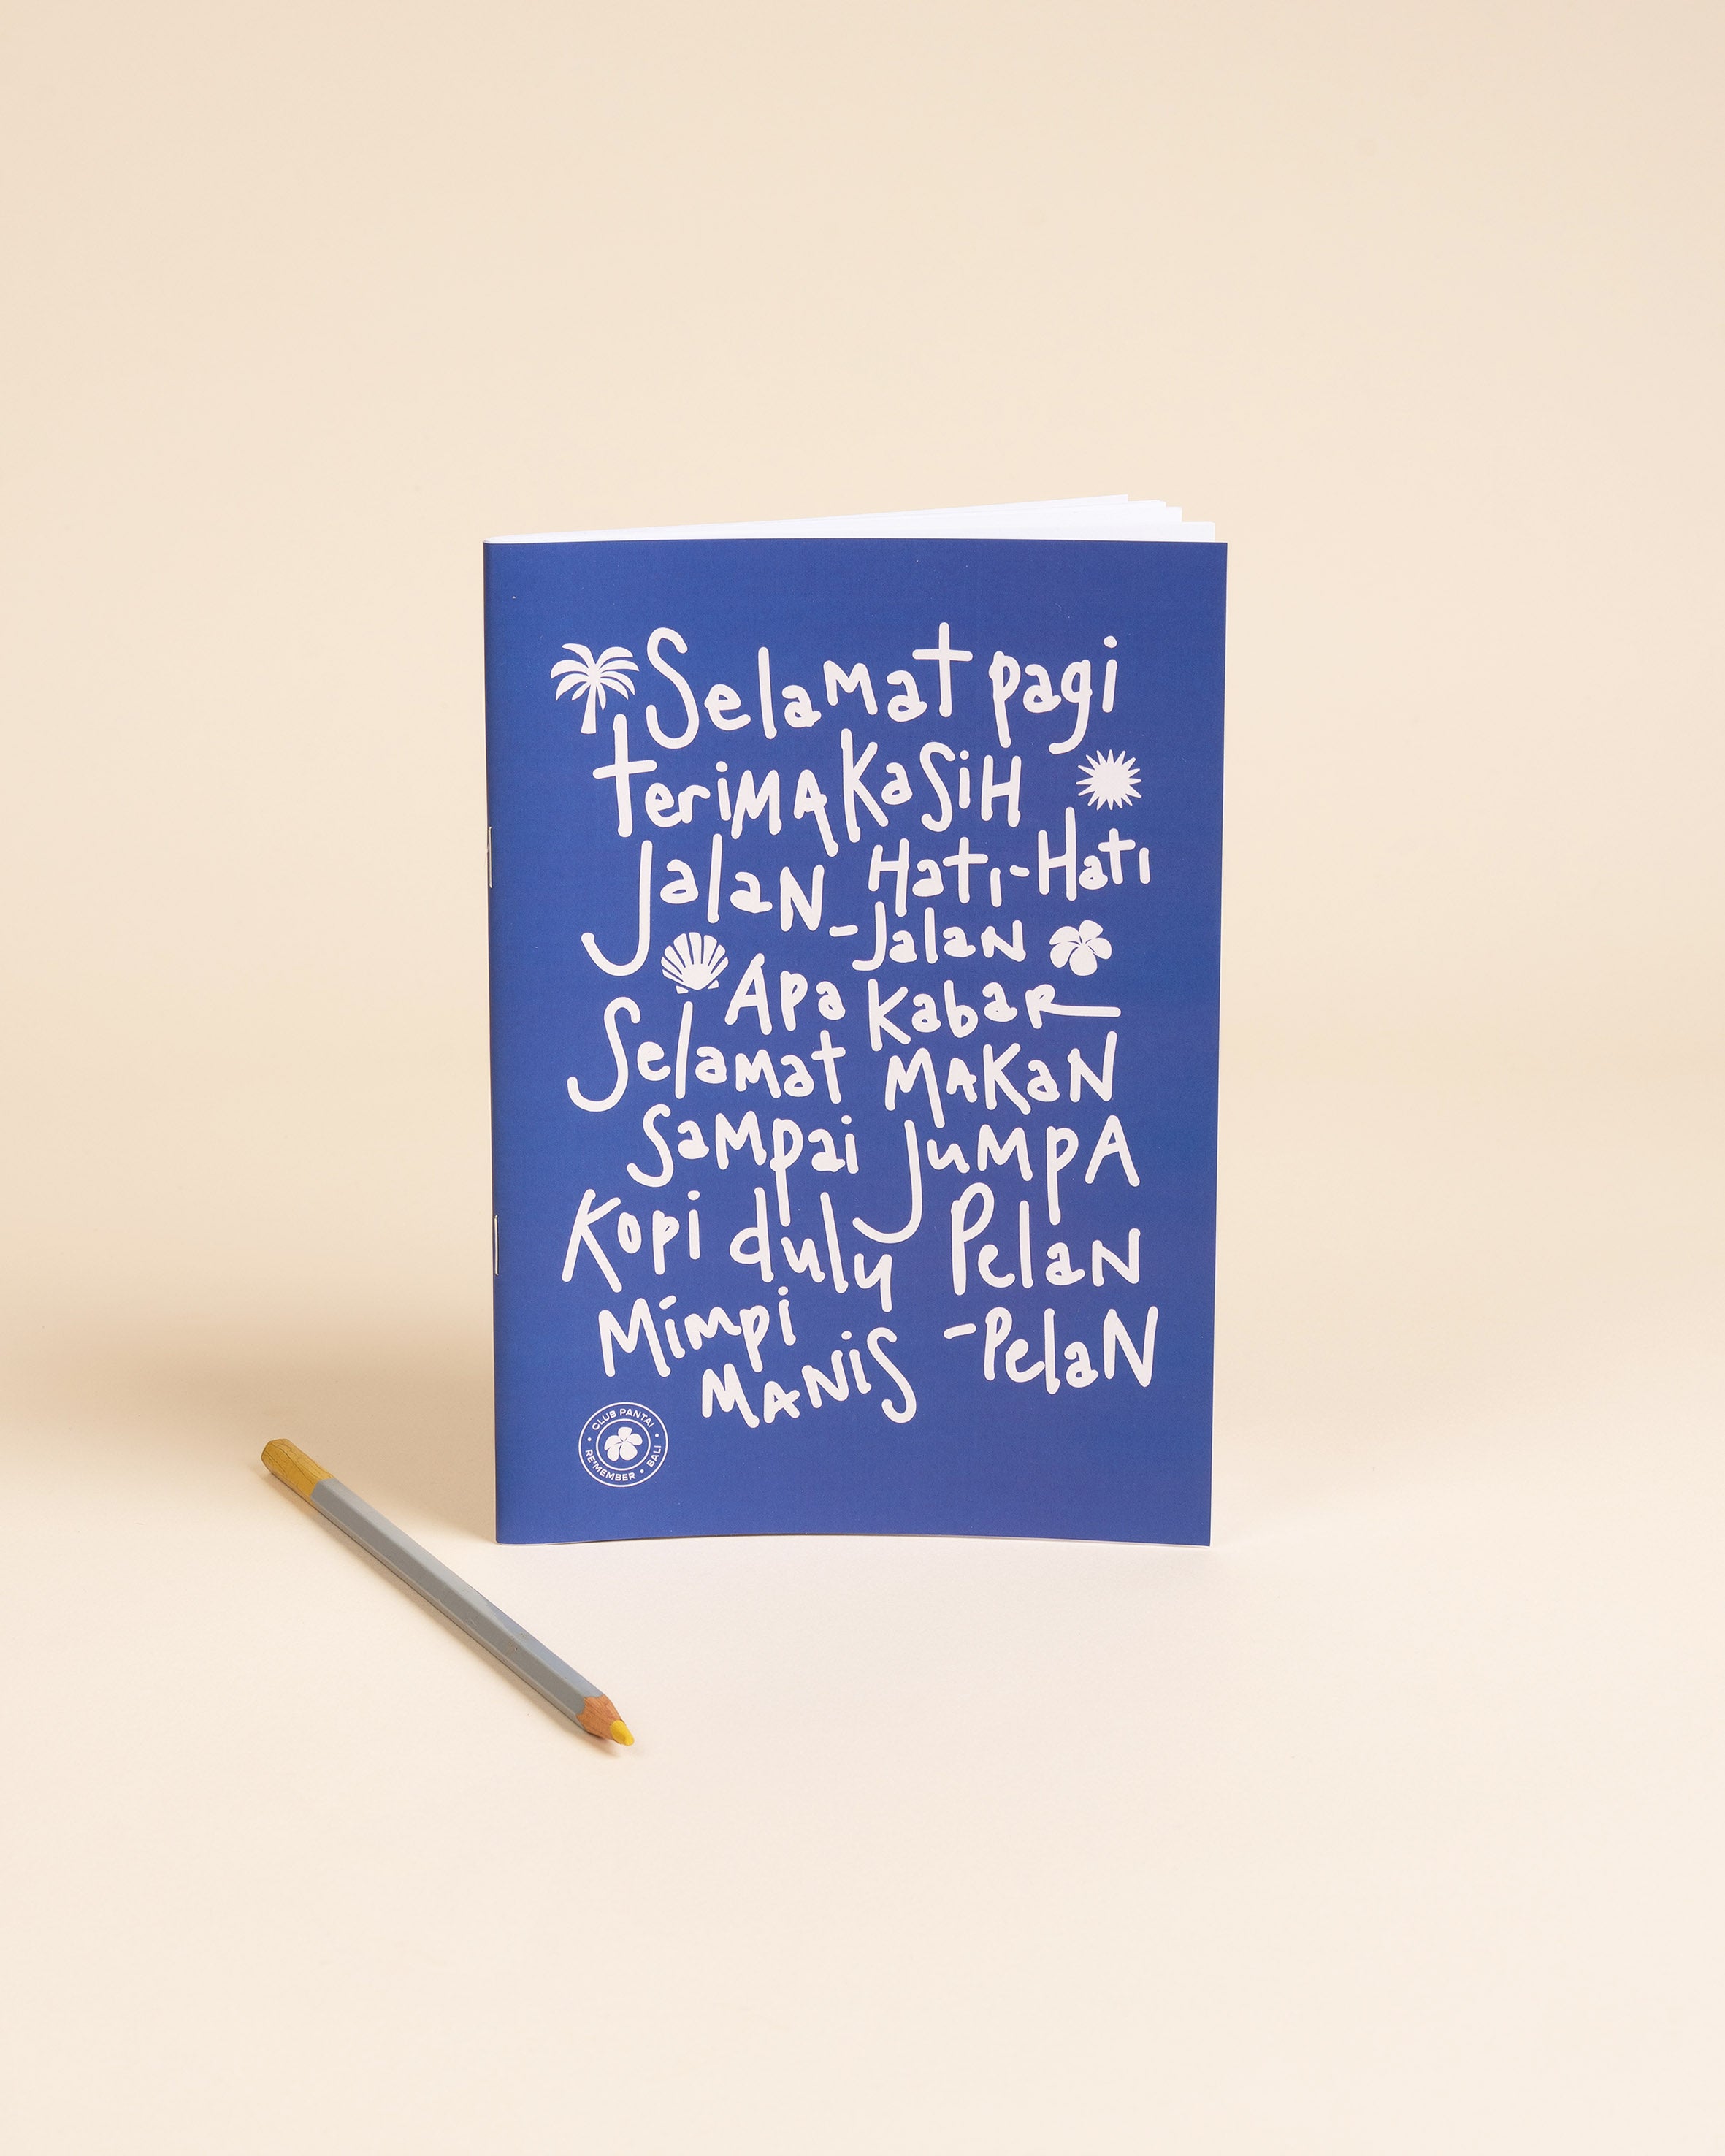 Selamat pagi
terima kasih
Jalan-Jalan
Hati-Hati
Apa kabar
Selamat makan
Sampai Jumpa
Kopi dulu
Pelan-Pelan
Mimpi manis
CLUB PANTAI
RE'MEMBER • BALI